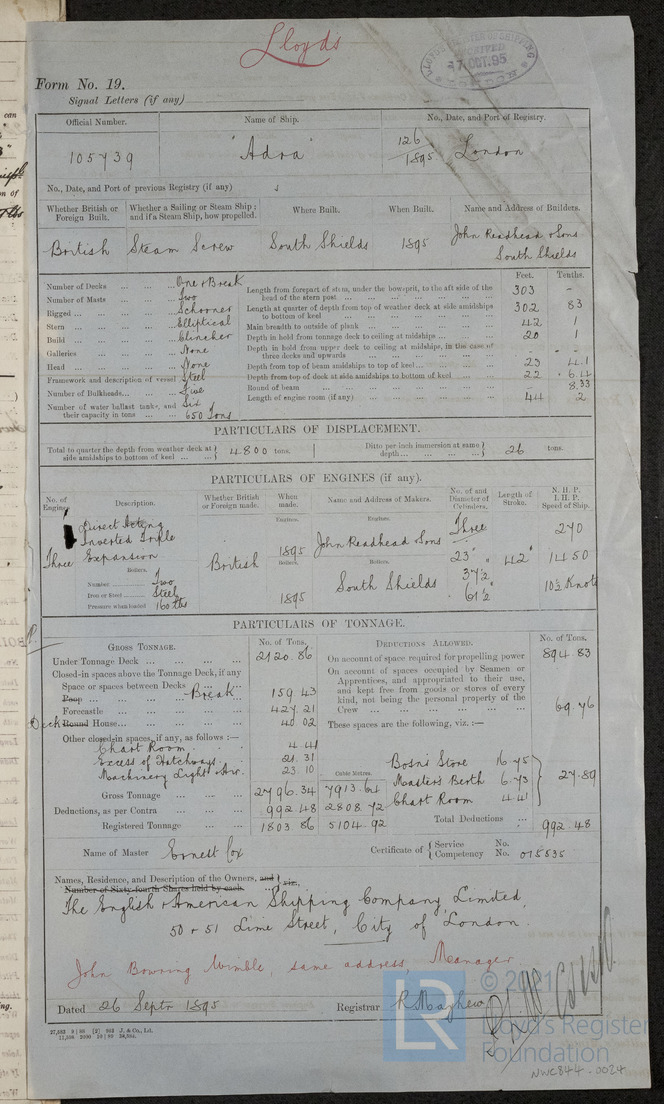 Lloyds
Form No. 19.
Signal Letters (if any)
Official Number. Name of Ship. No., Date, and Port of Registry.
105739 "Adra" 126/1895 London
No., Date, and Port of previous Registry (if any)
Whether British or Foreign Built. Whether a Sailing or Steam Ship; and if a Steam Ship, how propelled. Where Built. When Built. Name and Address of Builders.
British Steam Screw South Shields 1895 John Readhead & Sons
South Shields
Feet. Tenths.
Number of Decks One & Break
Number of Masts Two
Rigged Schooner
Stern Elliptical
Build Clincher
Galleries None
Head None
Framework and description of vessel Steel
Number of Bulkheads Five
Number of water ballast tanks, and their capacity in tons Six 650 Tons
Length from forepart of stem, under the bowsprit, to the aft side of the head of the stern post 303 -
Length at quarter of depth from top of weather deck at side amidships to bottom of keel 302 83
Main breadth to outside of plank 42 1
Depth in hold from tonnage deck to ceiling at midships 20 1
Depth in hold from upper deck to ceiling at midships, in the case of three decks and upwards - -
Depth from top of beam amidships to top of keel 23 441
Depth from top of deck at side amidships to bottom of keel 22 .64
Round of beam 8.33
Length of engine room (if any) 44 2
PARTICULARS OF DISPLACEMENT.
Total to quarter the depth from weather deck at side amidships to bottom of keel 4800 tons. Ditto per inch immersion at same depth 26 tons.
PARTICULARS OF ENGINES (if any).
No. of Engines. Description. Whether British or Foreign made. When made. Name and Address of Makers. No. of and Diameter of Cylinders. Length of Stroke. N. H. P. I. H. P. Speed of Ship.
Engines. Engines.
Direct Acting
Inverted Triple
Three Expansion British 1895 John Readhead & Sons Three 23" 42" 270 1450
Boilers. Boilers. Boilers.
Number Two
Iron or Steel Steel
Pressure when loaded 160 lbs
1895 South Shields 37½ 61½" 10½ Knots
PARTICULARS OF TONNAGE.
GROSS TONNAGE. No. of Tons. DEDUCTIONS ALLOWED. No. of Tons.
Under Tonnage Deck 2120.86
Closed-in spaces above the Tonnage Deck, if any
Space or spaces between Decks
Poop Break 159.43
Forecastle 427.21
Deck Round House 40 02
Other closed-in spaces, if any, as follows :—
Chart Room 4.41
Excess of Hatchways 21.31
Machinery Light & Air 23.10
Cubic Metres.
Gross Tonnage 2796.34 7913.64
Deductions, as per Contra 992.48 2808.72
Registered Tonnage 1803.86 5104.92
On account of space required for propelling power 894 83
On account of spaces occupied by Seamen or Apprentices, and appropriated to their use, and kept free from goods or stores of every kind, not being the personal property of the Crew 69.76
These spaces are the following, viz. :—
Bosn's Store 16.75
Master's Berth 6.73
Chart Room 4.41
27.89
Total Deductions 992.48
Name of Master Ernest Cox Certificate of Service No.
Competency No. 015535
Names, Residence, and Description of the Owners, and viz.,
Number of Sixty-fourth Shares held by each.
The English & American Shipping Company, Limited,
50 & 51 Lime Street, City of London.
John Bowring Wimble, same address, Manager.
Dated 26 Septr 1895 Registrar R Mayhew
LR
© 2021
Lloyd's Register
Foundation
NWC844-0024